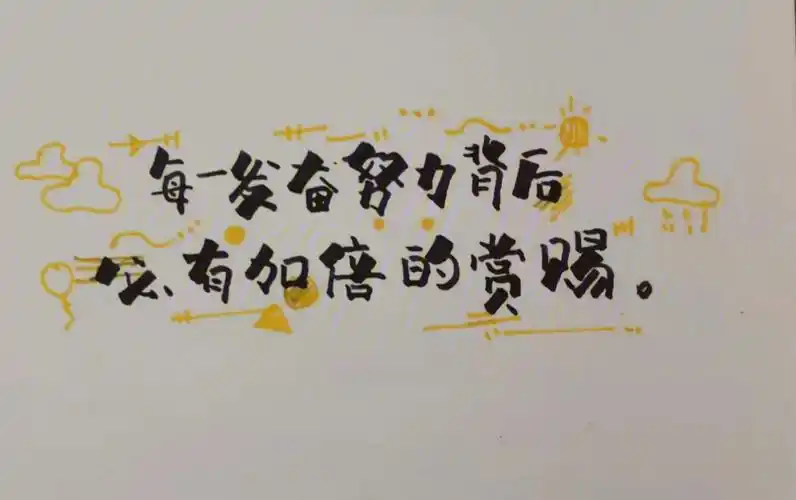 每一发奋努力背后
必有加倍的赏赐。